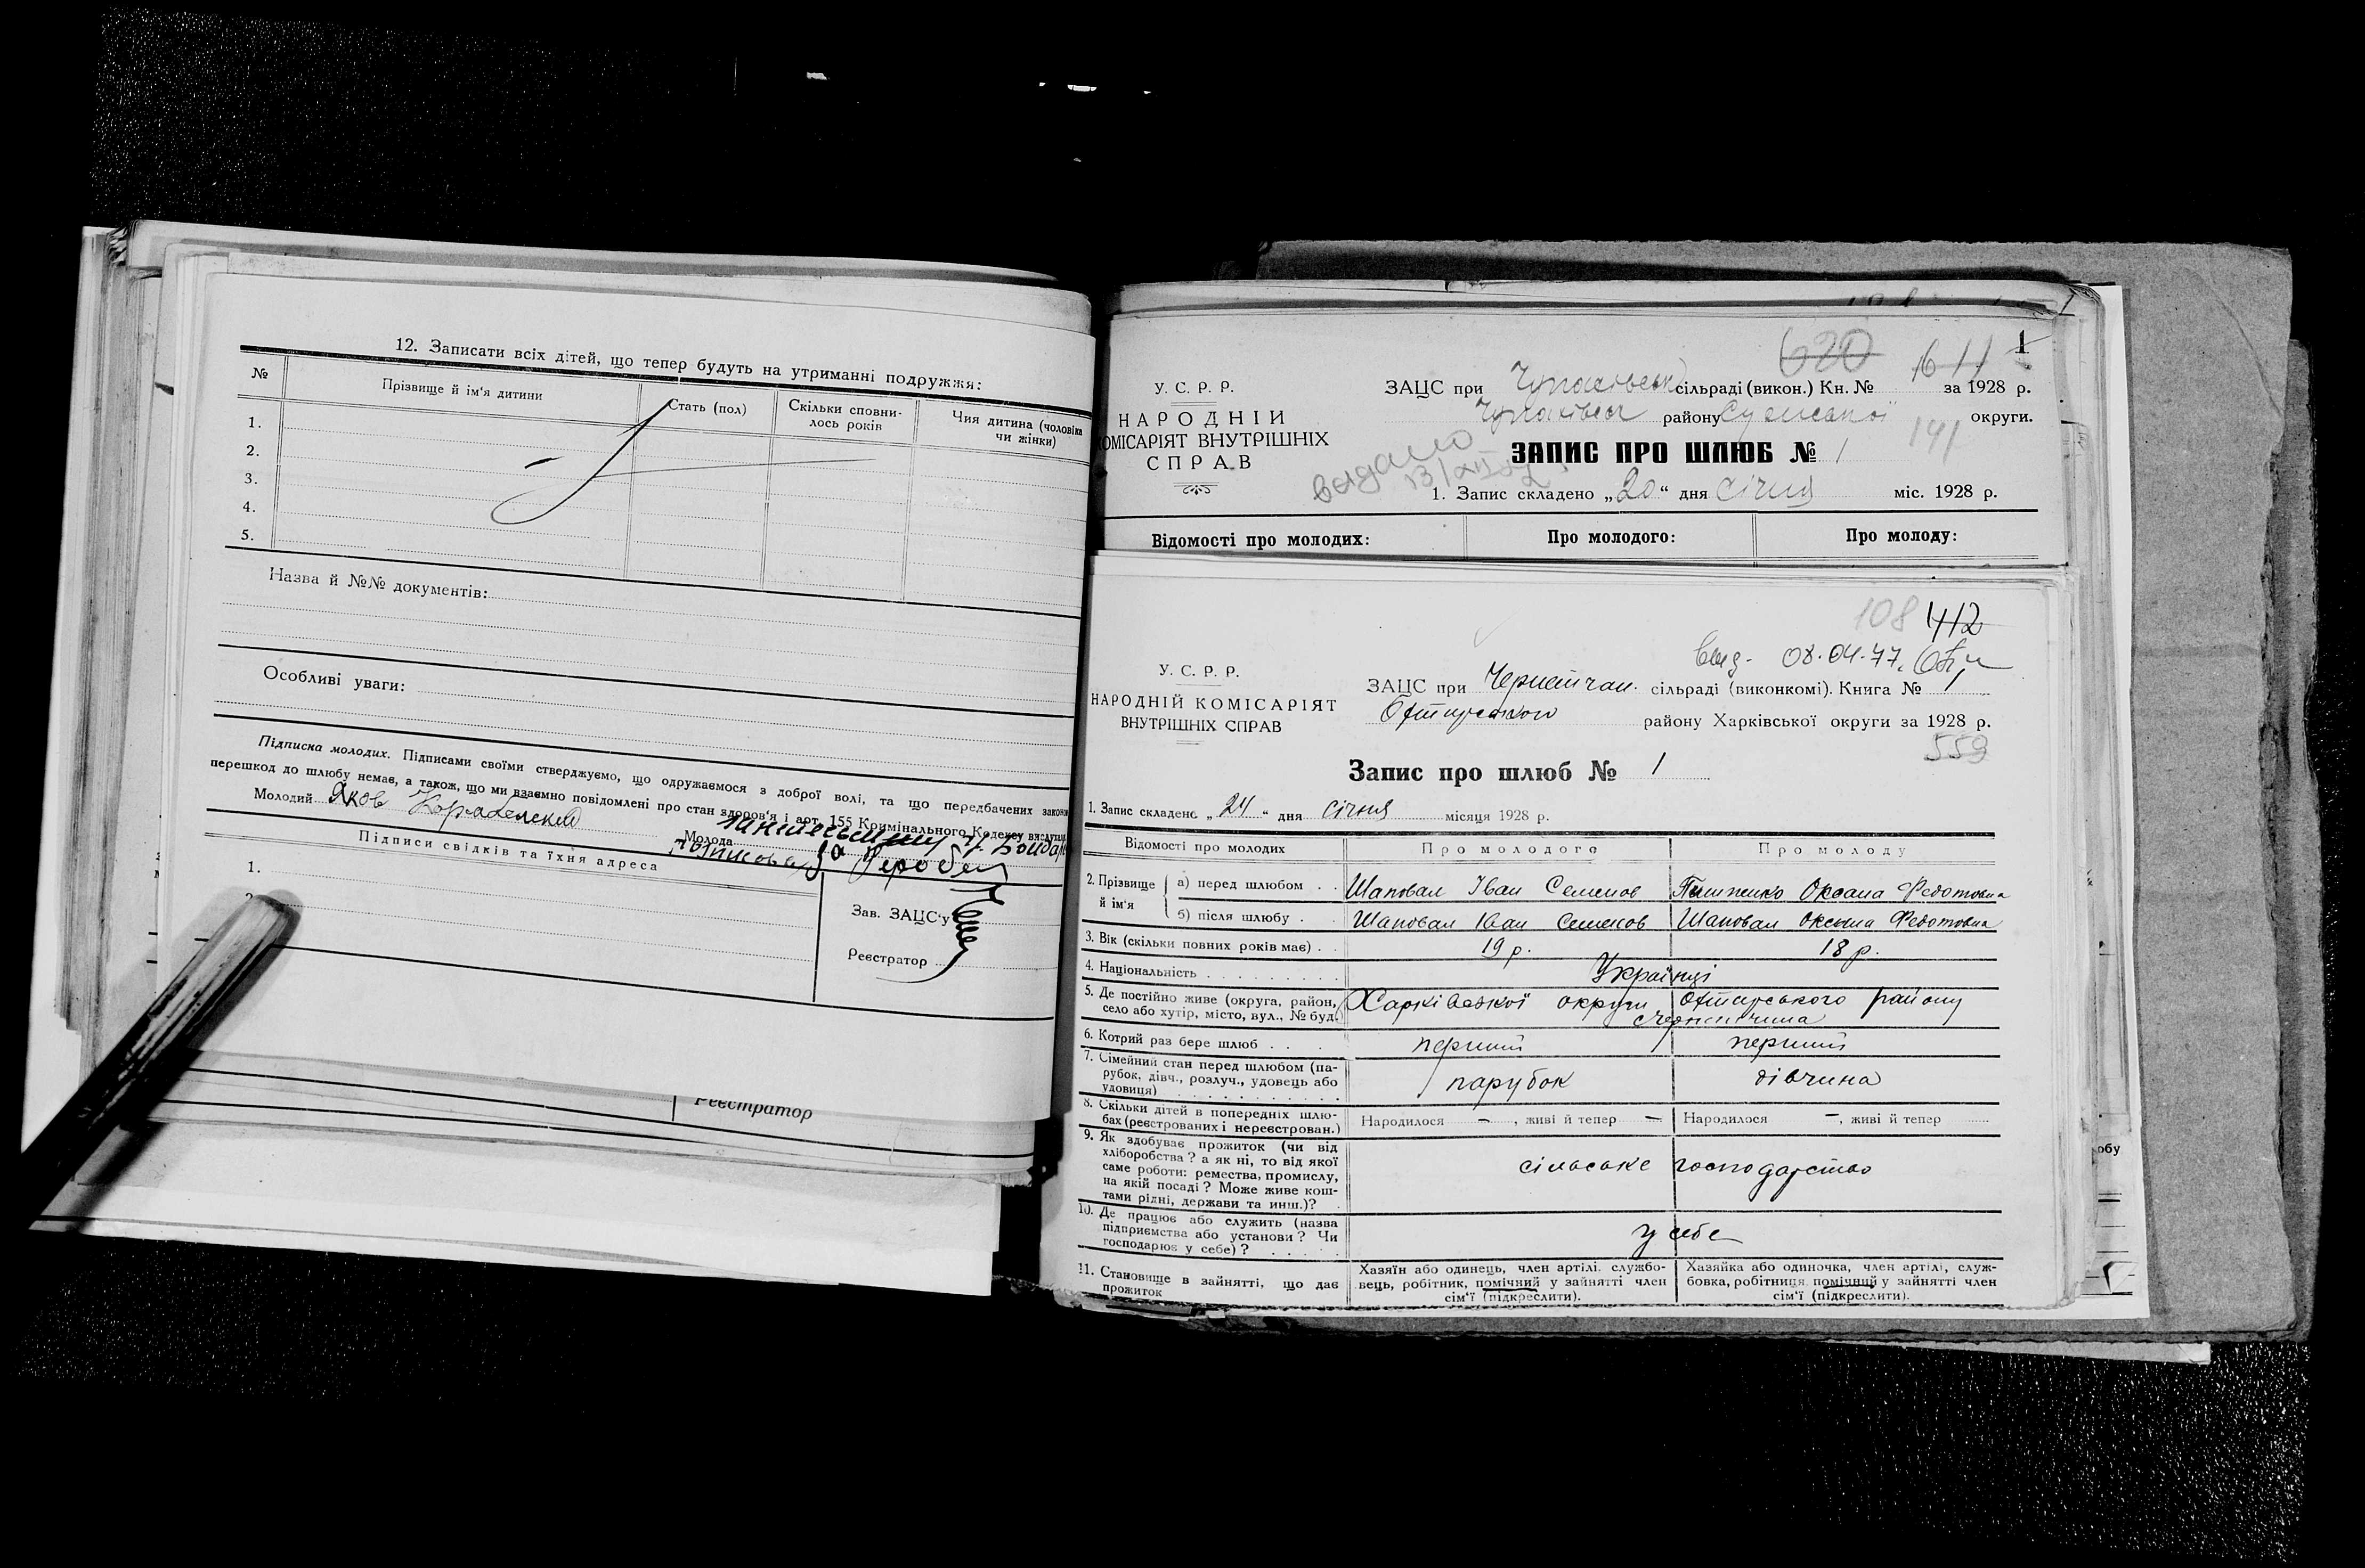 12. Записати всіх дітей, що тепер будуть на утриманні подружжя:
№ Прізвище й ім'я дитини Стать (пол) Скільки сповнилось років Чия дитина (чоловіка чи жінки)
1.
2.
3.
4.
5.
Назва й №№ документів:
Особливі уваги:
Підписка молодих. Підписами своїми стверджуємо, що одружаємося з доброї волі, та що передбачених закон
перешкод до шлюбу немає, а також, що ми взаємно повідомлені про стан здоров'я і арт. 155 Кримінального Кодексу вислуш
Молодий Яков Молода
Підписи свідків та їхня адреса
1.
Зав. ЗАЦС'у
Реєстратор
Реєстратор
1
620 611
У. С. Р. Р.
НАРОДНІЙ
КОМІСАРІЯТ ВНУТРІШНІХ
СПРАВ
ЗАЦС при Чупахівськ сільраді (викон.) Кн. № за 1928 р.
Чупахівськ району Сумської округи.
191
ЗАПИС ПРО ШЛЮБ № 1
1. Запис складено „20" дня січня міс. 1928 р.
Відомості про молодих: Про молодого: Про молоду:
108 412
Выд. 08.04.77.
У. С. Р. Р.
НАРОДНІЙ КОМІСАРІЯТ
ВНУТРІШНІХ СПРАВ
ЗАЦС при Чернетчан. сільраді (виконкомі). Книга № 1
Охтирського району Харківської округи за 1928 р.
559
Запис про шлюб № 1
1. Запис складено „24" дня січня місяця 1928 р.
Відомості про молодих Про молодого Про молоду
2. Прізвище й ім'я
а) перед шлюбом . . Шаповал Іван Семенов Оксана Федотовна
б) після шлюбу . Шаповал Іван Семенов Шаповал Оксана Федотовна
3. Вік (скільки повних років має) . . 19 р. 18 р.
4. Національність . . . . . . . . . Українці
5. Де постійно живе (округа, район, село або хутір, місто, вул., № буд.) Харківської округи Охтирського району
с. Чернетчина
6. Котрий раз бере шлюб . . . перший перший
7. Сімейний стан перед шлюбом (парубок, дівч., розлуч., удовець або удовиця) парубок дівчина
8. Скільки дітей в попередніх шлюбах (реєстрованих і нереєстрован.) Народилося —, живі й тепер — Народилося —, живі й тепер
9. Як здобуває прожиток (чи від хліборобства? а як ні, то від якої саме роботи: ремества, промислу, на якій посаді? Може живе коштами рідні, держави та инш.)? сільське господарство
10. Де працює або служить (назва підприємства або установи? Чи господарює у себе)? у себе
11. Становище в зайнятті, що дає прожиток Хазяїн або одинець, член артілі, службовець, робітник, помічний у зайнятті член сім'ї (підкреслити). Хазяйка або одиночка, член артілі, службовка, робітниця, помічний у зайнятті член сім'ї (підкреслити).
обу